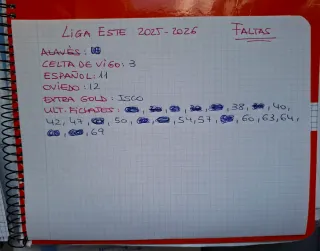 LIGA ESTE 2025-2026 FALTAS
ALAVÉS:
CELTA DE VIGO: 3
ESPAÑOL: 11
OVIEDO: 12
EXTRA GOLD: ISCO
ULT. FICHAJES: 38, 40,
42, 47, 50, 54, 57, 60, 63, 64,
69